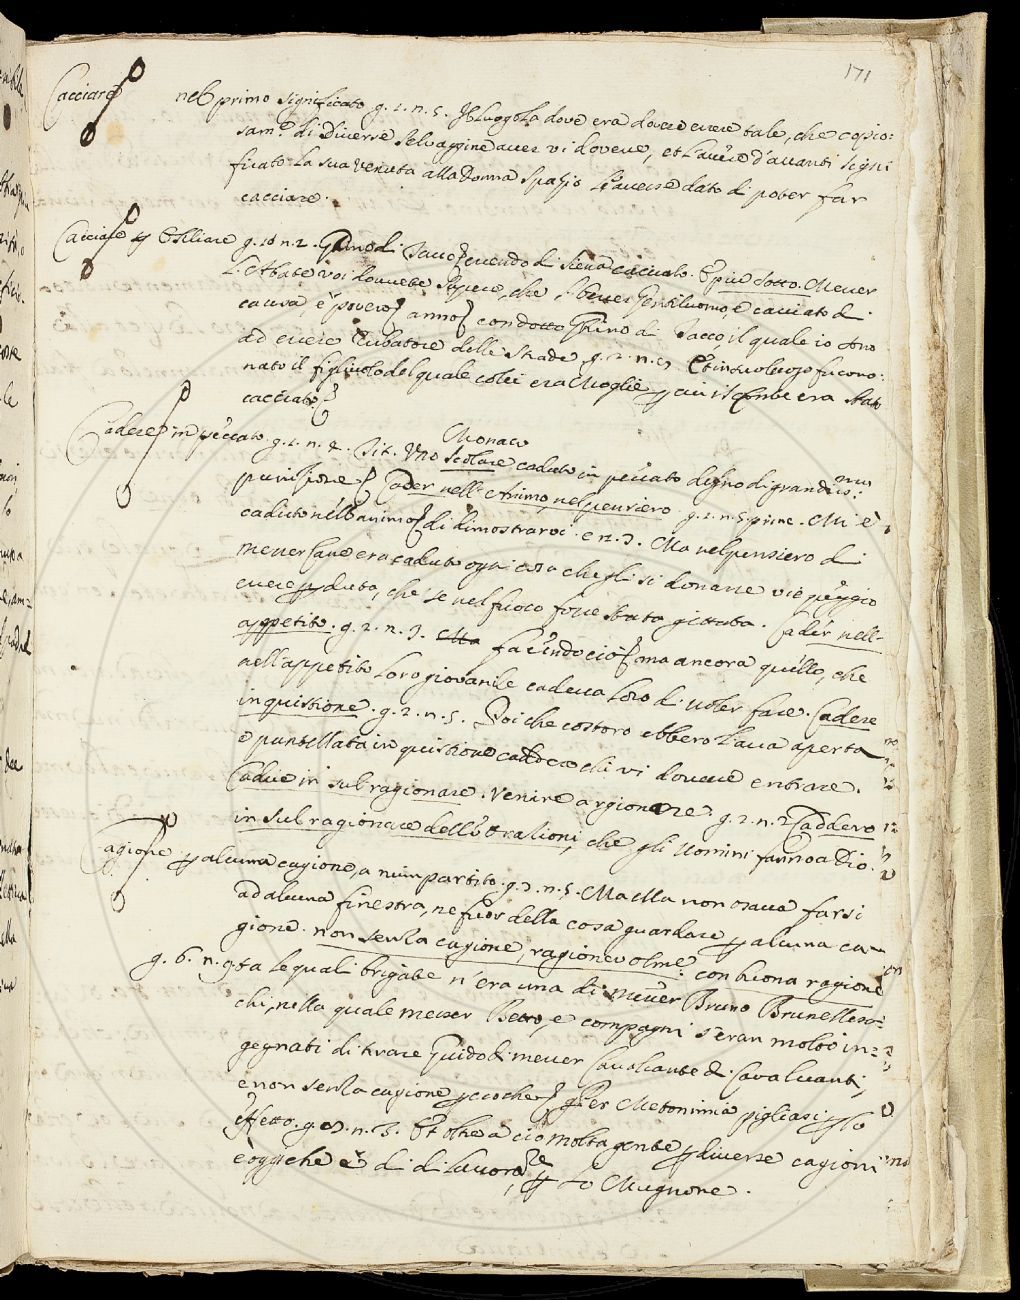 171
Cacciare nel primo significato g. 2. n. 5. Il luogo la dove era dovere essere tale, che copio:
sam.e di diverse selvaggine aver vi dovere, et l'avere d'avanti signi
ficato la sua venuta alla Donna spazio l'avesse dato di poter far
cacciare.
Cacciare p Essiliare g. 10 n. 2. Ghino di Tacco essendo di Siena cacciato. E più sotto. Messer
l'Abate voi dovvete sapere, che l'esser Gentiluomo e cacciato di
causa, e povero anno condotto Ghino di Tacco il quale io sono
ad essere rubatore delle strade, g. 2. n. Et in suo luogo furono
nato il figliuolo del quale colei era Moglie p cui il Conte era stato
cacciato
Cadere in peccato. g. 1. n. 4. Tit. Uno Monaco
scolare caduto in peccato degno di grandiss:mo
punizione Cader nell'Animo, nel pensiero. g. 2. n. 5 prine. Mi è
caduto nell'animo di dimostrarvi. e n. 3. Ma nel pensiero di
messer era caduto ogni cosa che gli si donasse vie peggio
essere pduta, che se nel fuoco fosse stata gittata. Cader nell-
appetito. g. 2. n. 3. facendo ciò ma ancora quello, che
nell'appetito loro giovanile cadeva loro di voler fare. Cadere
in quistione. g. 2. n. 5. Poi che costoro ebbero l'arca aperta
e puntellata in quistione caddero chi vi dovesse entrare.
Cadere in sul ragionare. Venire a rgionare. g. 2. n. 2 Caddero
in sul ragionare dell'orationi, che gli Uomini fanno a Dio.
Cagione p alcuna cagione, a niun partito. g. 3. n. 5. Ma ella non osava farsi
ad alcuna finestra, ne fuor della casa guardare p alcuna ca-
gione. non senza cagione, ragionevolme. con buona ragione
g. 6. n. 9. tra le quali brigate n'era una di messer Bruno Brunellesc-
chi, nella quale messer Betto, e compagni s'eran molto in=
gegnati di tirare Guido di messer Cavalcante de Cavalcanti,
e non senza cagione pcioche Per Metonimia pigliasi p lo
effetto. g. n. 3. Et oltre a ciò molta gente p diverse cagioni
e oggi che è di di lavorare p lo Mugnone.